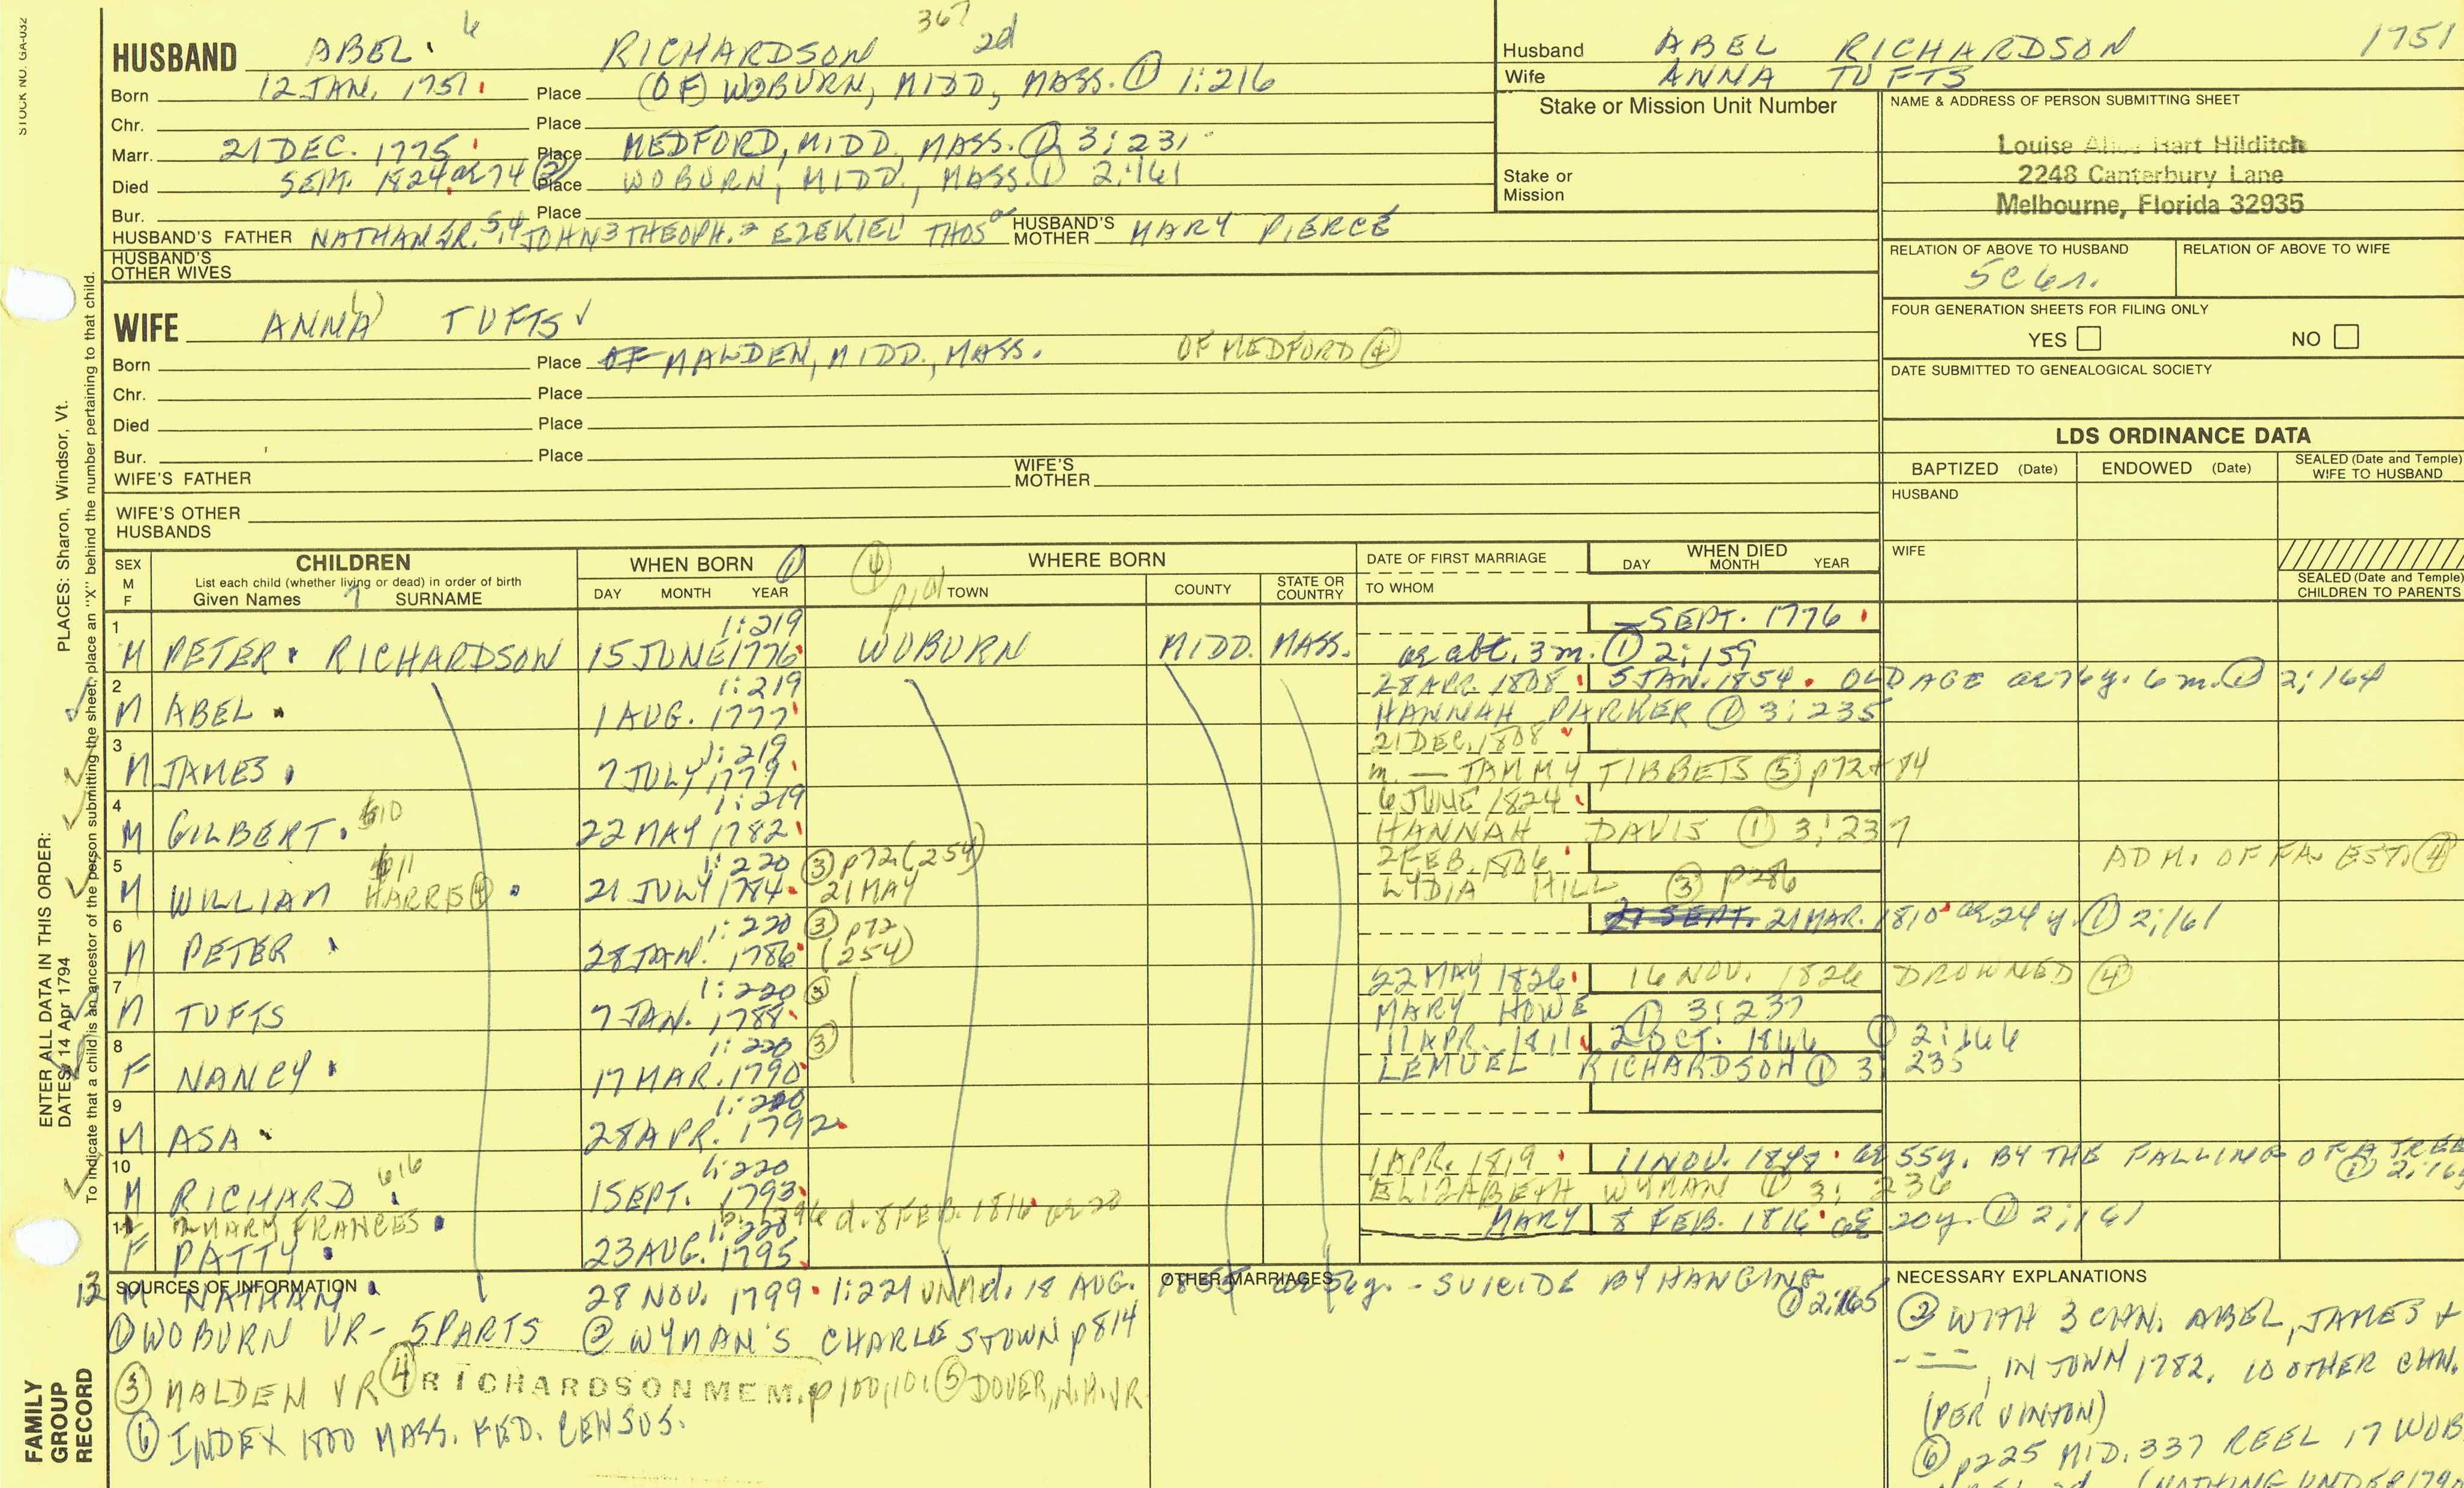 STOCK NO. GA-032
HUSBAND ABEL 6 RICHARDSON 367 2d
Born 12 JAN. 1751 Place (OF) WOBURN, MIDD, MASS. ① 1:216
Chr. Place
Marr. 21 DEC. 1775 Place MEDFORD, MIDD, MASS. ① 3:231
Died SEPT. 1824 ae 74 ② Place WOBURN, MIDD., MASS. ① 2:161
Bur. Place
HUSBAND'S FATHER NATHAN JR. 5,4 JOHN 3 THEOPH. 2 EZEKIEL 1 THOS HUSBAND'S MOTHER MARY PIERCE
HUSBAND'S OTHER WIVES
WIFE ANNA TUFTS ✓
Born Place OF MALDEN, MIDD., MASS. OF MEDFORD ④
Chr. Place
Died Place
Bur. Place
WIFE'S FATHER WIFE'S MOTHER
WIFE'S OTHER HUSBANDS
Husband ABEL RICHARDSON 1751
Wife ANNA TUFTS
Stake or Mission Unit Number
Stake or Mission
NAME & ADDRESS OF PERSON SUBMITTING SHEET
Louise Alice Hart Hilditch
2248 Canterbury Lane
Melbourne, Florida 32935
RELATION OF ABOVE TO HUSBAND RELATION OF ABOVE TO WIFE
5C 6r.
FOUR GENERATION SHEETS FOR FILING ONLY
YES NO
DATE SUBMITTED TO GENEALOGICAL SOCIETY
LDS ORDINANCE DATA
BAPTIZED (Date) ENDOWED (Date) SEALED (Date and Temple) WIFE TO HUSBAND
HUSBAND
WIFE
SEALED (Date and Temple) CHILDREN TO PARENTS
SEX M F CHILDREN WHEN BORN ① ④ WHERE BORN DATE OF FIRST MARRIAGE WHEN DIED
List each child (whether living or dead) in order of birth DAY MONTH YEAR TOWN COUNTY STATE OR COUNTRY TO WHOM DAY MONTH YEAR
Given Names SURNAME
1 1:219 SEPT. 1776
M PETER RICHARDSON 15 JUNE 1776 WOBURN MIDD. MASS. ae abt. 3 m. ① 2:159
2 1:219 28 APR. 1808 5 JAN. 1854 OLD AGE ae 76 y. 6 m. ① 2:164
M ABEL 1 AUG. 1777 HANNAH PARKER ① 3:235
3 1:219 21 DEC. 1808
M JAMES 7 JULY 1779 m. — TAMMY TIBBETS ⑤ p72+84
4 1:219 6 JUNE 1824
M GILBERT 610 22 MAY 1782 HANNAH DAVIS ① 3:237
5 611 1:220 ③ p72 (254) 2 FEB. 1806 ADM. OF FA. EST. ④
M WILLIAM HARRIS ④ 21 JULY 1784 21 MAY LYDIA HILL ③ p286
6 1:220 ③ p72 21 SEPT. 21 MAR. 1810 ae 24 y. ① 2:161
M PETER 28 JAN. 1786 (254)
7 1:220 ③ 22 MAY 1826 16 NOV. 1826 DROWNED ④
M TUFTS 7 JAN. 1788 MARY HOWE ① 3:237
8 1:220 ③ 11 APR. 1811 2 OCT. 1866 ① 2:166
F NANCY 17 MAR. 1790 LEMUEL RICHARDSON ① 3:235
9 1:220
M ASA 28 APR. 1792
10 616 1:220 1 APR. 1819 11 NOV. 1848 ae 55y. BY THE FALLING OF A TREE
M RICHARD 1 SEPT. 1793 ELIZABETH WYMAN ① 3:236 ① 2:16
11 MARY FRANCES 1:220 d. 8 FEB. 1816 ae 20 MARY 8 FEB. 1816 ae 20y. ① 2:161
F PATTY 23 AUG. 1795
12 M NATHAN 28 NOV. 1799 1:221 UNM d. 18 AUG. 1855 ae 56y. - SUICIDE BY HANGING ① 2:165
SOURCES OF INFORMATION
① WOBURN VR - 5 PARTS ② WYMAN'S CHARLESTOWN p814
③ MALDEN VR ④ RICHARDSON MEM. p100,101 ⑤ DOVER, N.H. VR
⑥ INDEX 1800 MASS. FED. CENSUS.
OTHER MARRIAGES
NECESSARY EXPLANATIONS
② WITH 3 CHN. ABEL, JAMES +
---, IN TOWN 1782. 10 OTHER CHN.
(PER VINTON)
⑥ p225 MID. 337 REEL 17 WOB
(NOTHING UNDER 179
PLACES: Sharon, Windsor, Vt.
ENTER ALL DATA IN THIS ORDER:
DATES: 14 Apr 1794
To indicate that a child is an ancestor of the person submitting the sheet, place an "X" behind the number pertaining to that child.
FAMILY GROUP RECORD